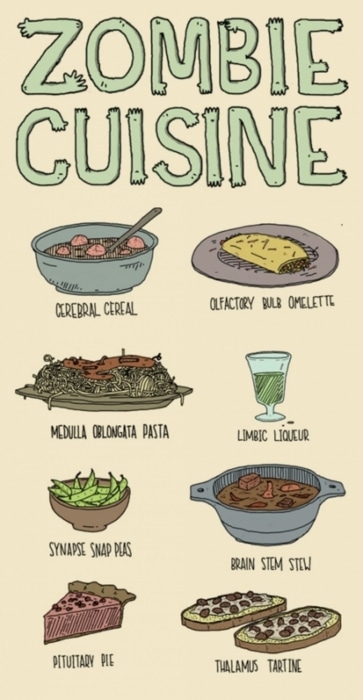 ZOMBIE
CUISINE
CEREBRAL CEREAL
OLFACTORY BULB OMELETTE
MEDULLA OBLONGATA PASTA
LIMBIC LIQUEUR
SYNAPSE SNAP PEAS
BRAIN STEM STEW
PITUITARY PIE
THALAMUS TARTINE